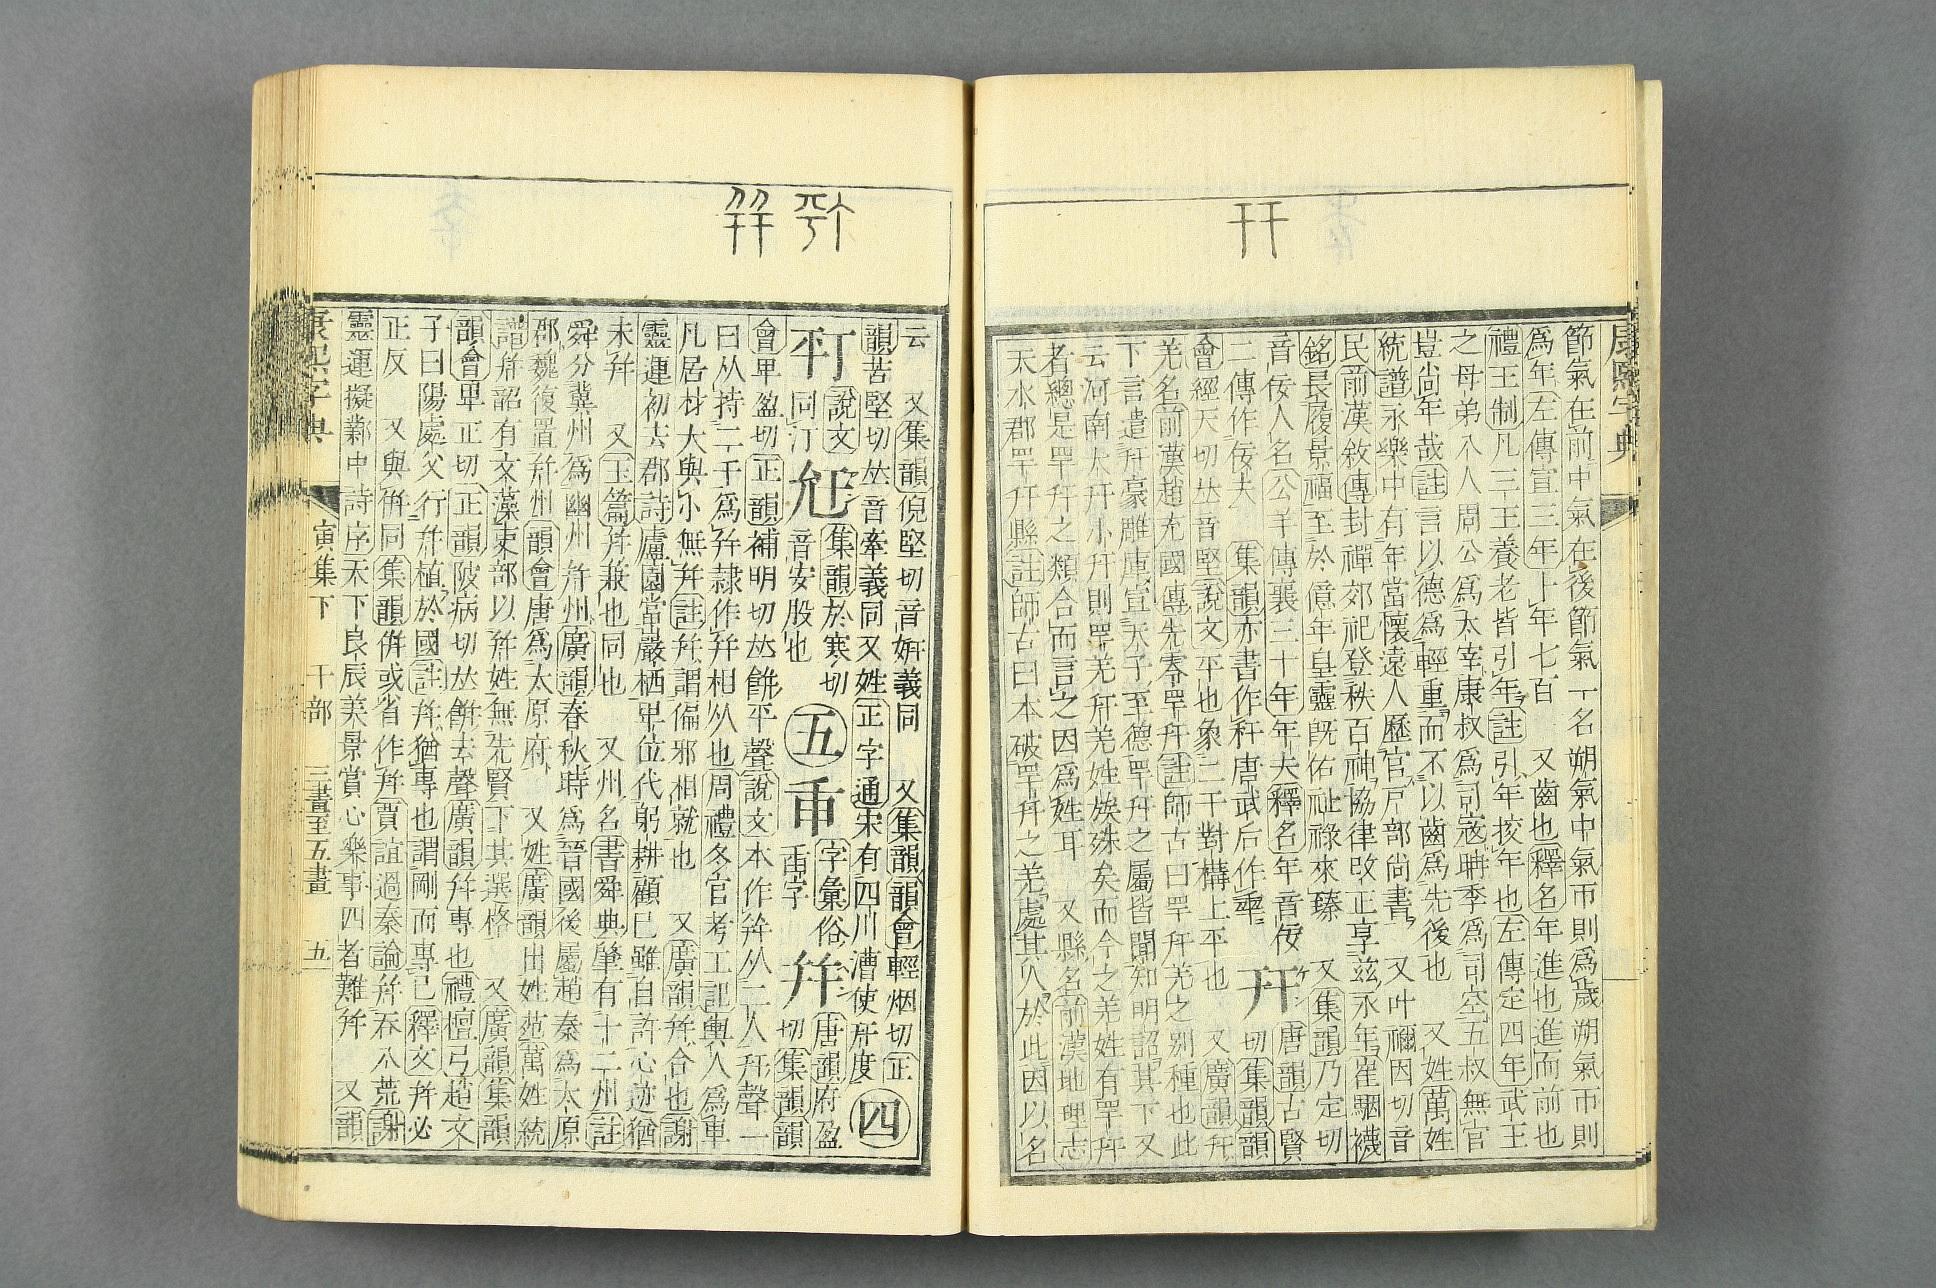 康熙字典
節氣在前中氣在後節氣一名朔氣中氣帀則爲歲朔氣帀則
爲年左傳宣三年卜年七百 又齒也釋名年進也進而前也
禮王制凡三王養老皆引年註引年挍年也左傳定四年武王
之母弟八人周公爲太宰康叔爲司寇聃季爲司空五叔無官
豈尚年哉註言以德爲輕重而不以齒爲先後也 又姓萬姓
統譜永樂中有年當懷遠人歷官戸部尚書 又叶禰因切音
民前漢敘傳封禪郊祀登秩百神協律改正享茲永年崔駰襪
銘長履景福至於億年皇靈旣佑祉祿來臻 又集韻乃定切
音佞人名公羊傳襄三十年年夫釋名年音佞
二傳作佞夫 集韻亦書作秊唐武后作𠡦
幵
唐韻古賢切集韻韻
會經天切𠀤音堅說文平也象二干對構上平也 又廣韻幵
羌名前漢趙充國傳先零罕幵註師古曰罕幵羌之別種也此
下言遣幵豪雕庫宣天子至德罕幵之屬皆聞知明詔其下又
云河南大幵小幵則罕羌幵羌姓族殊矣而今之羌姓有罕幵
者總是罕幵之類合而言之因爲姓耳 又縣名前漢地理志
天水郡罕幵縣註師古曰本破罕幵之羌處其人於此因以名
云 又集韻倪堅切音姸義同 又集韻韻會輕烟切正
韻苦堅切𠀤音牽義同又姓正字通宋有四川漕使幵度
四
說文
同汀
集韻於寒切
音安股也
五
𢆉
字彙俗
靣字
幷
唐韻府盈
切集韻韻
會𤰞盈切正韻補明切𠀤餠平聲說文本作幷从二人幵聲一
曰从持二干爲幷隷作并相从也周禮冬官考工記輿人爲車
凡居材大與小無幷註幷謂偏邪相就也 又廣韻幷合也謝
靈運初去郡詩廬園當嚴栖𤰞位代躬耕顧已雖自許心迹猶
未幷 又玉篇幷兼也同也 又州名書舜典肇有十二州註
舜分冀州爲幽州幷州廣韻春秋時爲晉國後屬趙秦爲太原
郡魏復置幷州韻會唐爲太原府 又姓廣韻出姓苑萬姓統
譜幷韶有文藻吏部以幷姓無先賢下其選格 又廣韻集韻
韻會𤰞正切正韻陂病切𠀤餠去聲廣韻幷專也禮檀弓趙文
子曰陽處父行幷植於國註幷猶專也謂剛而專已釋文幷必
正反 又與倂同集韻倂或省作幷賈誼過秦論幷吞八荒謝
靈運擬鄴中詩序天下良辰美景賞心樂事四者難幷 又韻
康熙字典 寅集下 干部 三畫至五畫 五